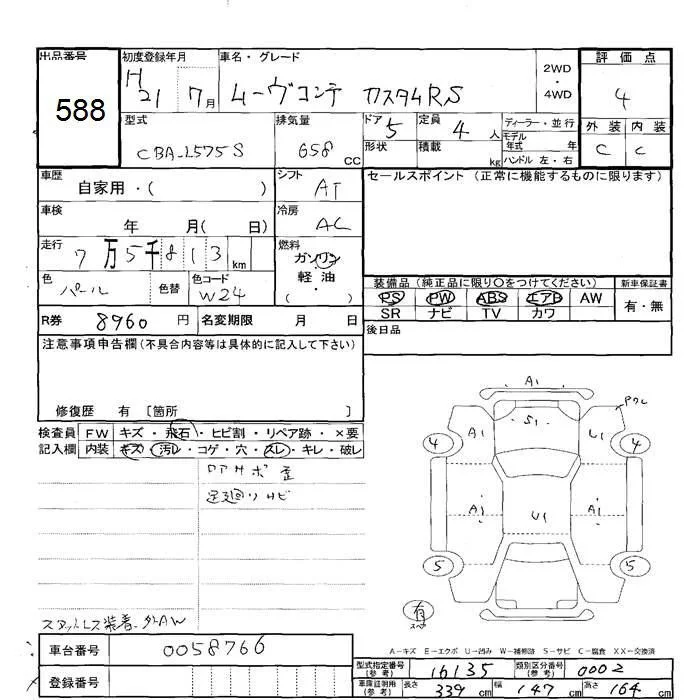 出品番号 初度登録年月 車名・グレード 2WD・4WD 評価点
588 H21 7月 ムーヴコンテ カスタムRS 4
型式 排気量 ドア 5 定員 4人 ディーラー・並行 外装 内装
CBA-L575S 658 CC 形状 積載 kg モデル年式 年 C C
ハンドル 左・右
車歴 自家用・( ) シフト AT セールスポイント (正常に機能するものに限ります)
車検 年 月( 日) 冷房 AC
走行 7万5千813 km 燃料 ガソリン
軽油・( )
色 パール 色替 色コード W24 装備品 (純正品に限り〇をつけてください) 新車保証書
PS PW ABS エアB AW 有・無
SR ナビ TV カワ
R券 8960円 名変期限 月 日 後日品
注意事項申告欄(不具合内容等は具体的に記入して下さい)
修復歴 有 [箇所 ]
検査員 FW キズ・飛石・ヒビ割・リペア跡・×要
記入欄 内装 キズ・汚レ・コゲ・穴・スレ・キレ・破レ
足廻りサビ
A1
A1 S1 U1
4 4
A1 U1 A1
5 5
有
スタットレス装着 外AW
A-キズ E-エクボ U-凹み W-補修跡 S-サビ C-腐食 XX-交換済
車台番号 0058766
型式指定番号(参考) 16135 類別区分番号(参考) 0002
登録番号
車庫証明用(参考) 長さ 339cm 幅 147cm 高さ 164cm